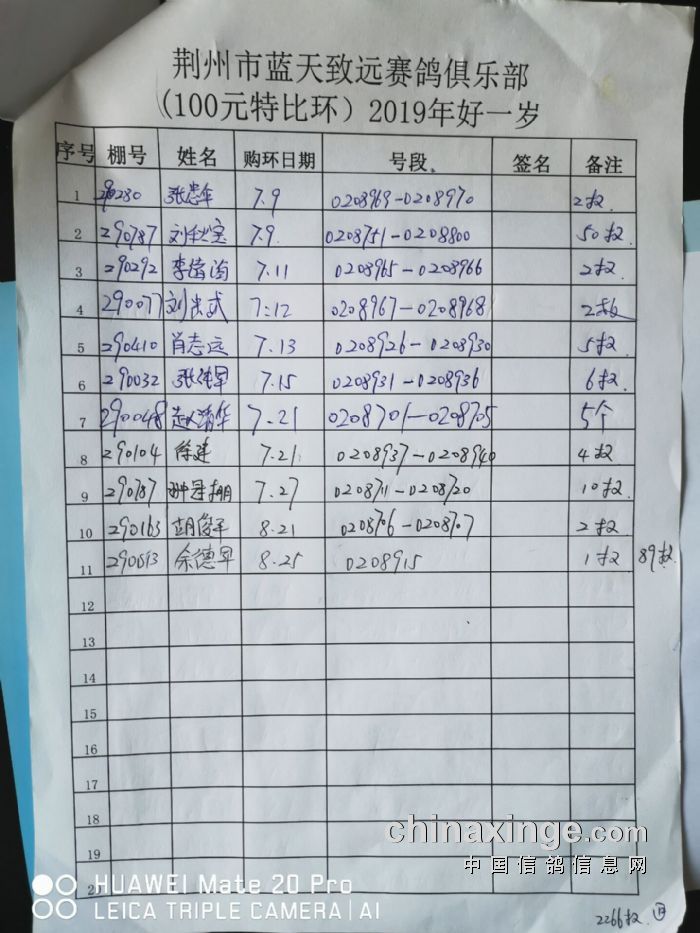 荆州市蓝天致远赛鸽俱乐部
(100元特比环）2019年好一岁
序号 棚号 姓名 购环日期 号段. 签名 备注
1 290280 张忠 7.9 0208969-0208970 2枚.
2 290787 刘 宝 7.9. 0208751-0208800 50枚.
3 290292 李 7.11 0208965-0208966 2枚.
4 290077 刘 武 7:12 0208967-0208968 2枚
5 290410 肖志远 7.13 0208926-0208930 5枚.
6 290032 张 7.15 0208931-0208936 6枚.
7 290048 赵清华 7.21 0208701-0208705 5个
8 290104 徐建 7.21 0208937-0208940 4枚
9 290787 棚 7.27 0208711-0208720 10枚.
10 290163 胡俊平 8.21 0208706-0208707 2枚.
11 余德 8.25 0208915 1枚 89枚.
12
13
14
15
16
17
18
19
2
chinaxinge.com
中国信鸽信息网
HUAWEI Mate 20 Pro
LEICA TRIPLE CAMERA | AI
2266枚.